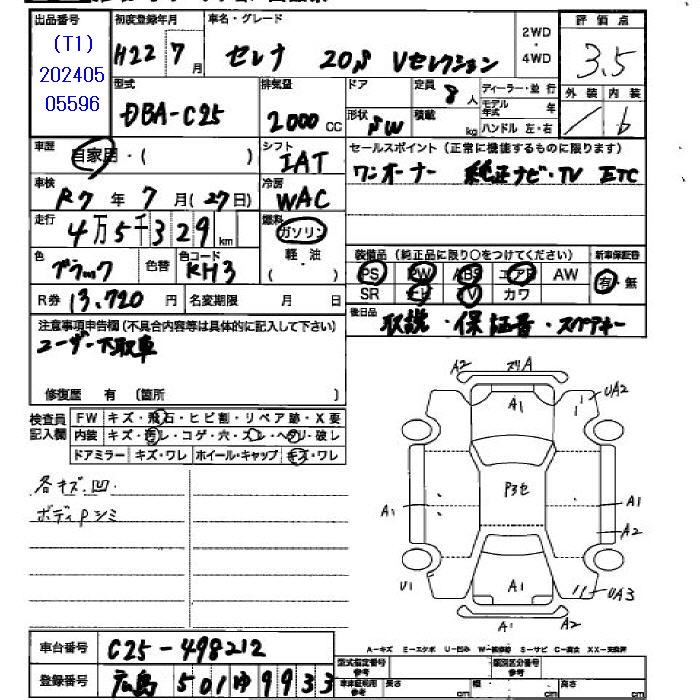 出品番号 初度登録年月 車名・グレード 2WD・4WD 評価点
(T1) 202405 05596
H22 7月 セレナ 20S Vセレクション 3.5
型式 排気量 ドア 定員 ディーラー・並行 外装 内装
DBA-C25 2000CC 8人 モデル年式 年
形状 SW 積載 kg ハンドル 左・右 / b
車歴 自家用・( ) シフト IAT セールスポイント(正常に機能するものに限ります)
車検 R7年7月(27日) 冷房 WAC ワンオーナー 純正ナビ・TV ETC
走行 4万5千329km 燃料 ガソリン 軽・油
色 ブラック 色替 色コード KH3 ( )
装備品(純正品に限り○をつけてください) 新車保証書
PS PW ABS エアB AW 有・無
SR ナビ TV カワ
R券 13,720円 名変期限 月 日 後日品 取説・保証書・スペアキー
注意事項申告欄(不具合内容等は具体的に記入して下さい)
ユーザー下取車
修復歴 有 〔箇所 〕
検査員記入欄 FW キズ・飛石・ヒビ割・リペア跡・X要
内装 キズ・汚レ・コゲ・穴・スレ・ヘタリ・破レ
ドアミラー キズ・ワレ ホイール・キャップ キズ・ワレ
各キズ.凹.
ボディPシミ
A2 スリA
A1 UA2
P3セ
A1 A1
A2
U1 A1 UA3
A2 A1
車台番号 C25-498212
A-キズ E-エクボ U-凹み W-補修跡 S-サビ C-腐食 XX-交換済
登録番号 広島 501 ゆ 9933
型式指定番号 参考 類別区分番号 参考
車庫証明用 参考 長さ cm 幅 cm 高さ cm